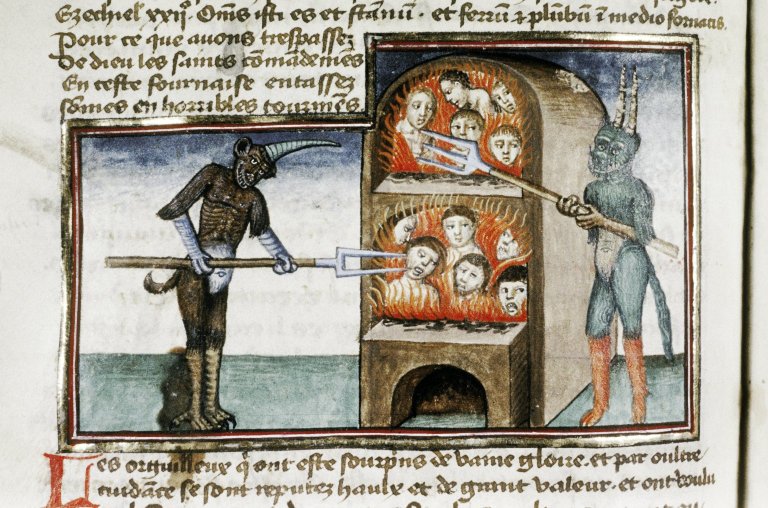 Ezechiel xxij°. Om̅s isti es et stan̅u̅. et ferru̅ ⁊ plu̅bu̅ i̅ medio fornacis.
Pour ce que auons trespassez
De dieu les saints co̅mādemēs
En ceste fournaise entassez
So̅mes en horribles tourmēs
Les orguilleux q̄ ont este sourpris de vaine gloire. et par oultre
cuidāce se sont reputez haulx et de grant valeur. et ont voulu